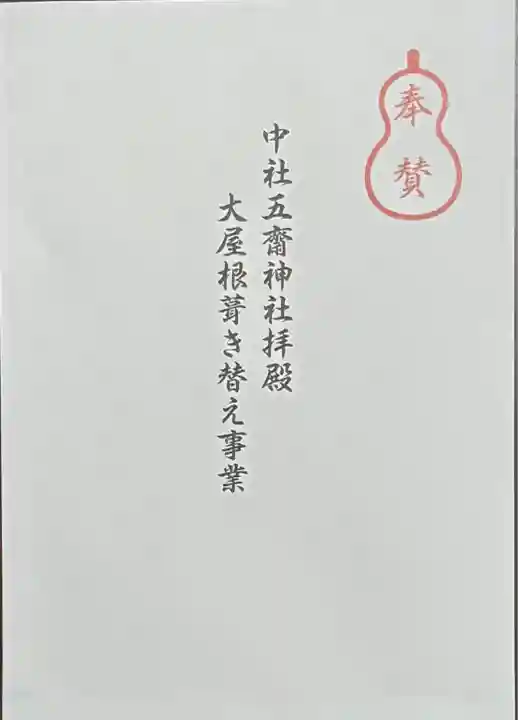 奉賛
中社五齋神社拝殿
大屋根葺き替え事業